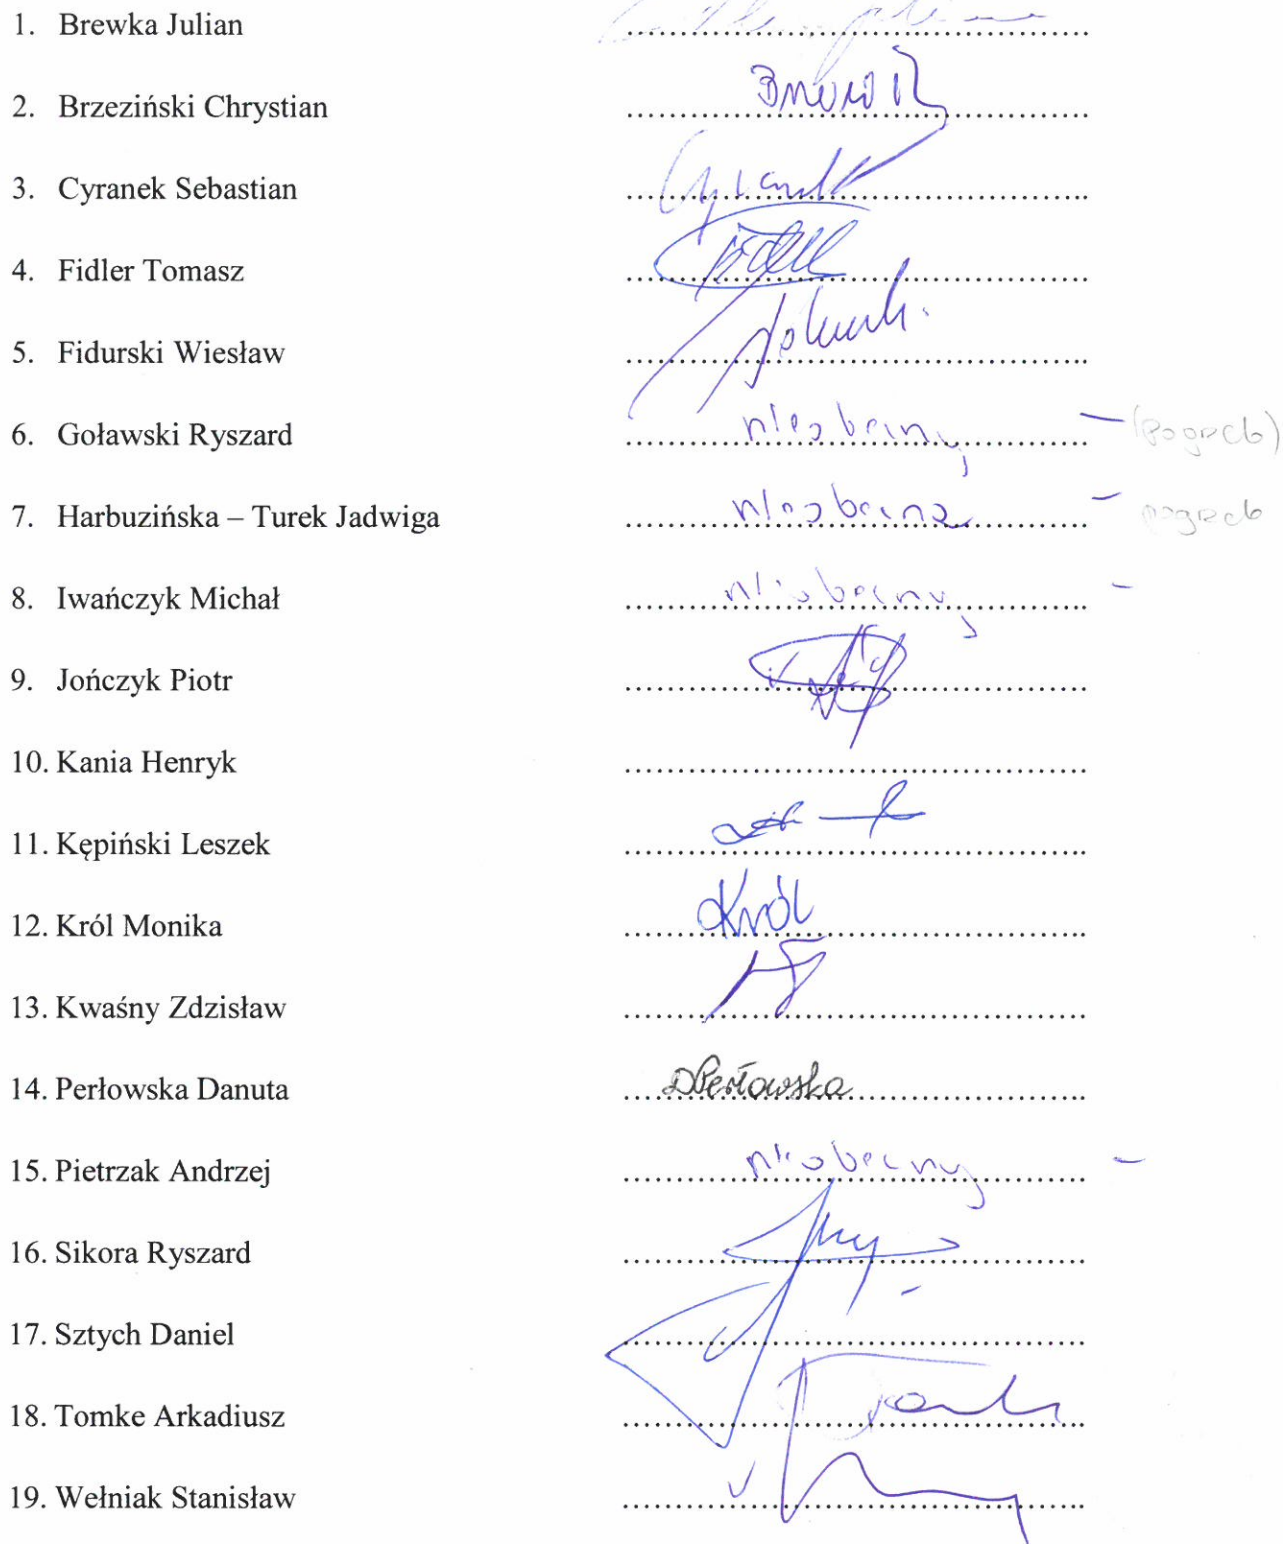 1. Brewka Julian ........................................
2. Brzeziński Chrystian ........................................
3. Cyranek Sebastian ........................................ Cyranek
4. Fidler Tomasz ........................................
5. Fidurski Wiesław ........................................
6. Goławski Ryszard ........................................ nieobecny – (pogrzeb)
7. Harbuzińska – Turek Jadwiga ........................................ nieobecna – pogrzeb
8. Iwańczyk Michał ........................................ nieobecny –
9. Jończyk Piotr ........................................
10. Kania Henryk ........................................
11. Kępiński Leszek ........................................
12. Król Monika ........................................ Król
13. Kwaśny Zdzisław ........................................
14. Perłowska Danuta ........................................ DPerłowska
15. Pietrzak Andrzej ........................................ nieobecny –
16. Sikora Ryszard ........................................
17. Sztych Daniel ........................................
18. Tomke Arkadiusz ........................................
19. Wełniak Stanisław ........................................